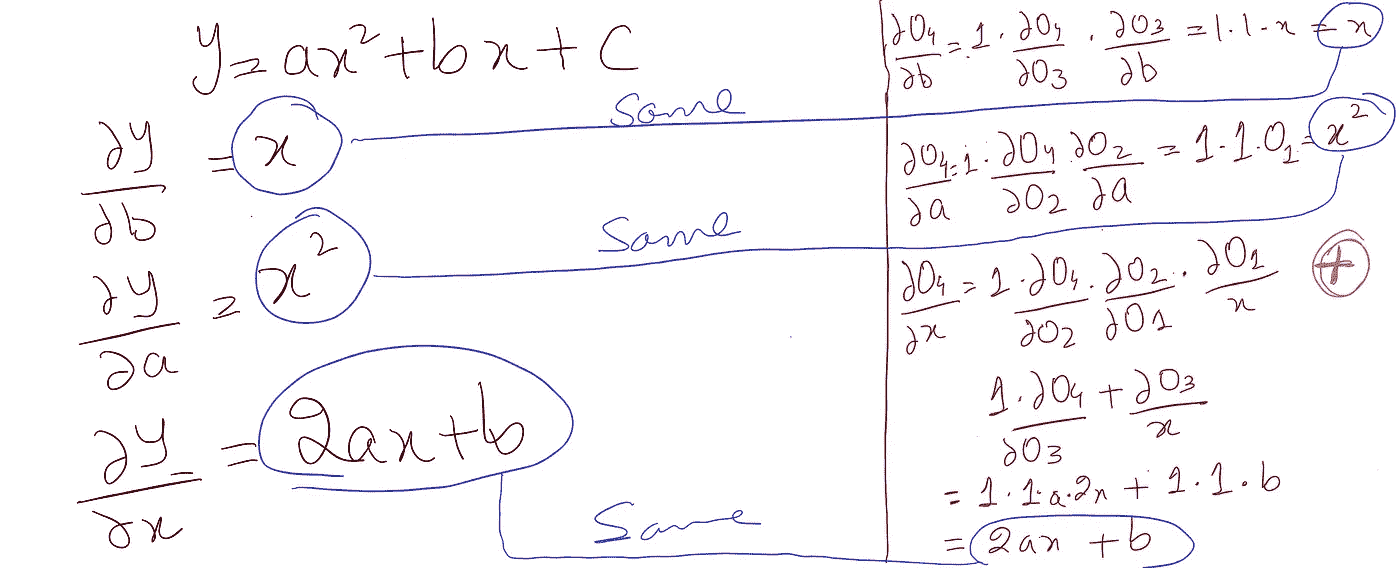 y = ax² + bx + c
∂y/∂b = x
Same
∂y/∂a = x²
Same
∂y/∂x = 2ax + b
Same
∂O₄/∂b = 1 · ∂O₄/∂O₃ · ∂O₃/∂b = 1 · 1 · x = x
∂O₄/∂a = 1 · ∂O₄/∂O₂ ∂O₂/∂a = 1 · 1 · O₁ = x²
∂O₄/∂x = 1 · ∂O₄/∂O₂ · ∂O₂/∂O1 · ∂O₁/x +
1 · ∂O₄/∂O₃ + ∂O₃/x
= 1 · 1 · a · 2x + 1 · 1 · b
= 2ax + b